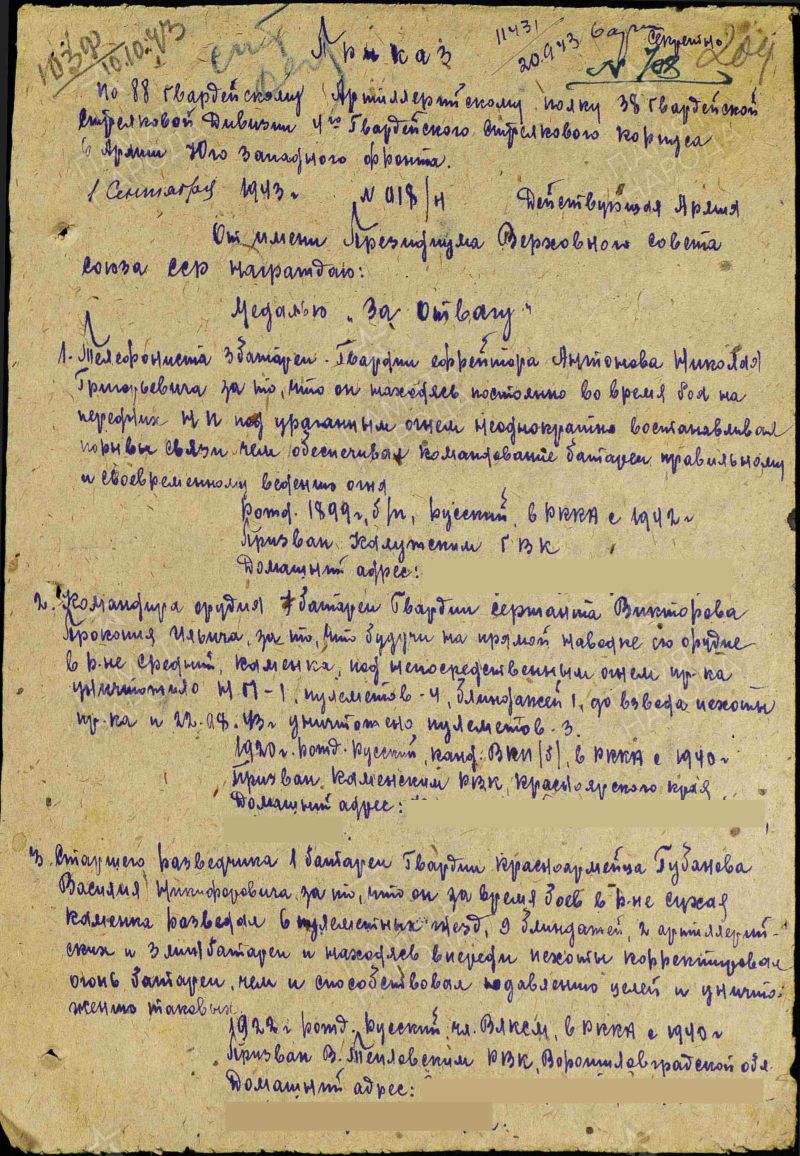 103ф
10.10.43
11431
20.9.43
Секретно
N 708
204
Приказ
По 88 Гвардейскому Артиллерийскому полку 38 Гвардейской
Стрелковой Дивизии 4го Гвардейского Стрелкового корпуса
6 Армии Юго Западного фронта.
1 Сентября 1943 г N 018/н Действующая Армия
От имени Президиума Верховного совета
союза ССР награждаю:
Медалью „За Отвагу"
1. Телефониста 3 батареи - Гвардии ефрейтора Антонова Николая
Григорьевича за то, что он находясь постоянно во время боя на
передних НП под ураганным огнем неоднократно востанавливал
порывы связи чем обеспечивал командование батареи правильному
и своевременному ведению огня
рожд. 1899 г, б/п, русский, в РККА с 1942 г
Призван Калужским ГВК
Домашний адрес:
2. Командира орудия батареи Гвардии сержанта Викторова
Прокопия Ильича, за то, что будучи на прямой наводке его орудие
в р-не Средний, Каменка, под непосредственным огнем пр-ка
уничтожило НП-1, пулеметов-4, блиндажей 1, до взвода пехоты
пр-ка и 22.08.43 г уничтожено пулеметов-3.
1920 г. рожд. Русский, канд. ВКП(б), в РККА с 1940 г
Призван Каменским РВК, Красноярского края
Домашний адрес:
3. Старшего разведчика 1 батареи Гвардии красноармейца Губанова
Василия Никифоровича, за то, что он за время боев в р-не Сухая
Каменка разведал 6 пулеметных гнезд, 9 блиндажей, 2 артиллерий-
ских и 3 мин батареи и находясь впереди пехоты корректировал
огонь батареи, чем и способствовал подавлению целей и уничто-
жению таковых
1922 г рожд. Русский, чл. ВЛКСМ, в РККА с 1940 г
Призван В. Тепловским РВК, Ворошиловградской обл.
Домашний адрес: